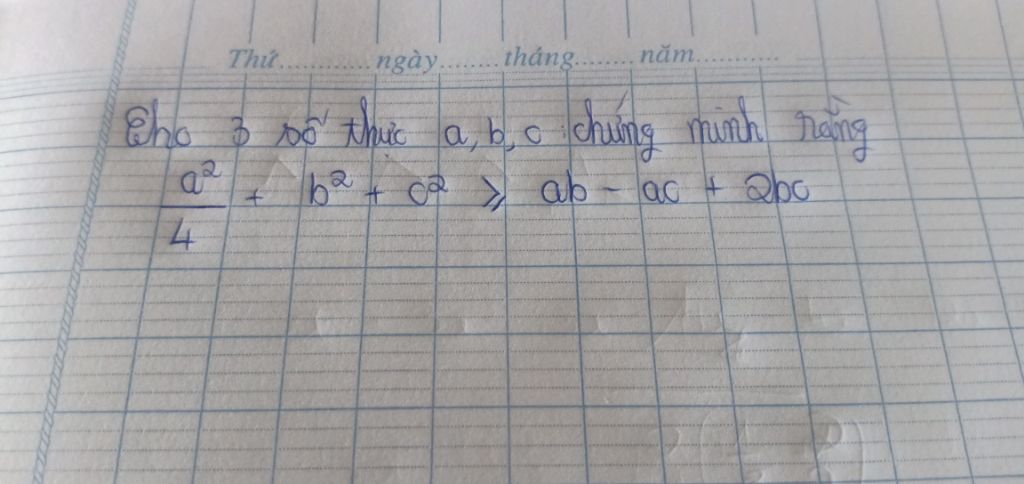 Thứ............ngày........tháng........năm............
Cho 3 số thực a, b, c chứng minh rằng
a²/4 + b² + c² ⩾ ab - ac + 2bc